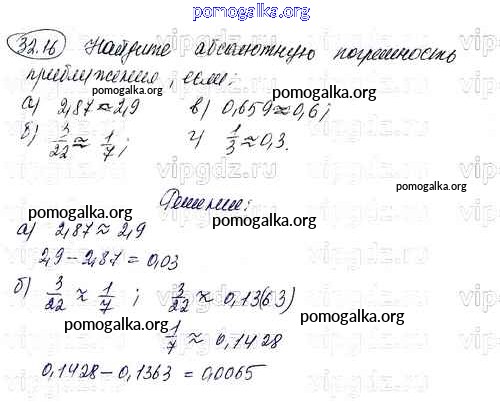 pomogalka.org
32.16 Найдите абсолютную погрешность
приближения, если:
а) 2,87 ≈ 2,9 в) 0,659 ≈ 0,6;
б) 3/22 ≈ 1/7; г) 1/3 ≈ 0,3.
Решение:
pomogalka.org pomogalka.org
а) 2,87 ≈ 2,9
2,9 - 2,87 = 0,03
б) 3/22 ≈ 1/7 ; 3/22 ≈ 0,13(63)
pomogalka.org pomogalka.org
1/7 ≈ 0,1428
0,1428 - 0,1363 = 0,0065
pomogalka.org
vipgdz.ru